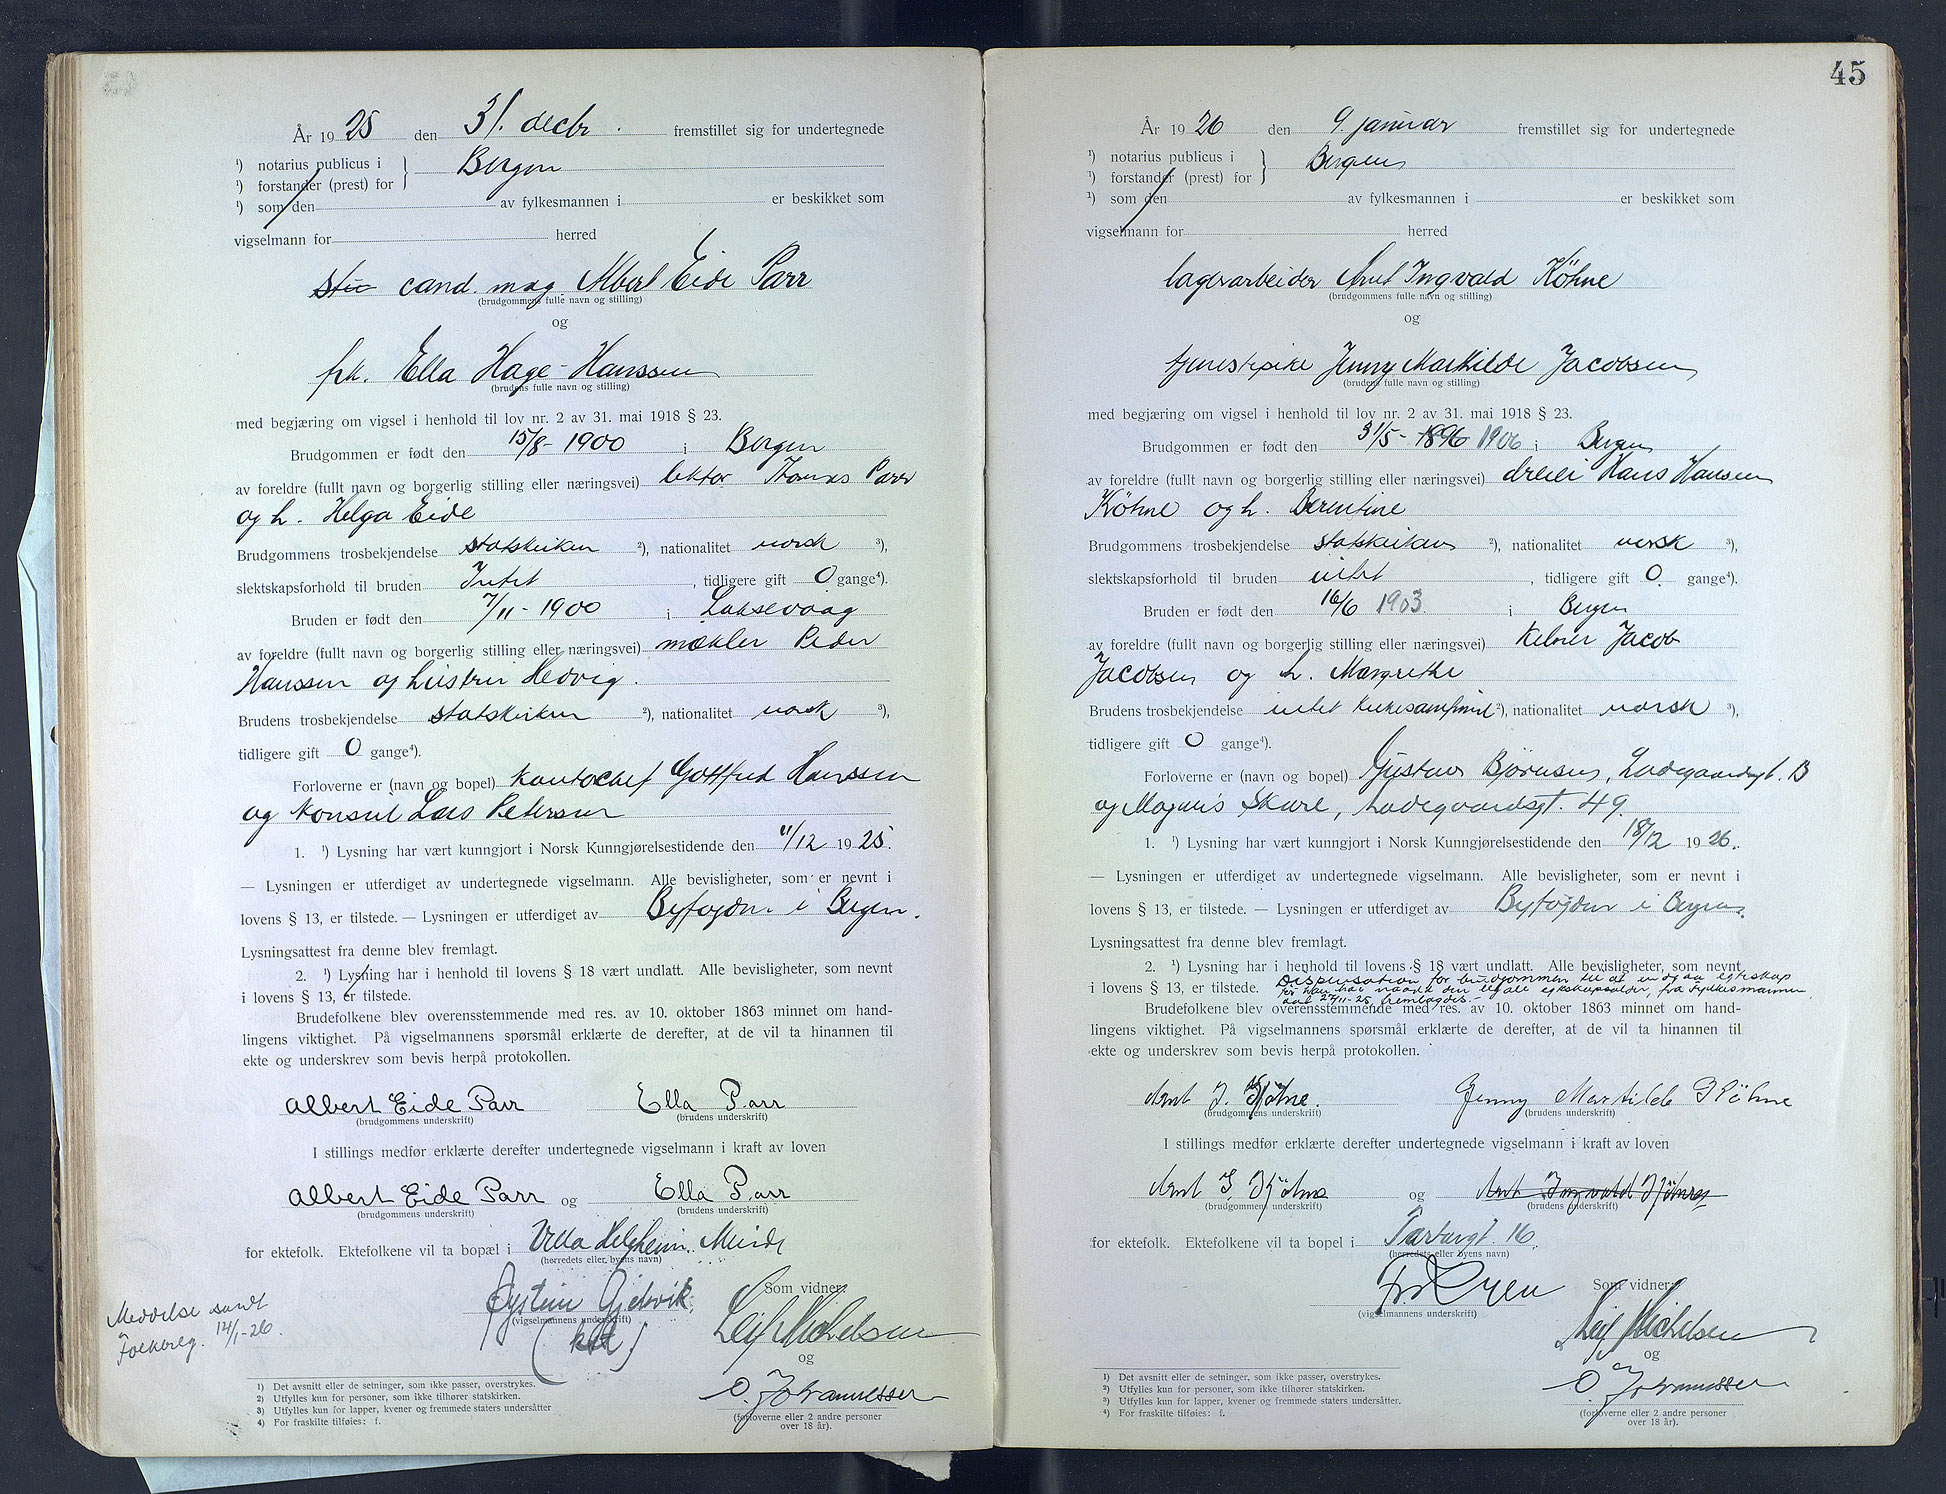 År 1925 den 31. decbr. fremstillet sig for undertegnede
¹) notarius publicus i } Bergen
¹) forstander (prest) for
¹) som den av fylkesmannen i er beskikket som
vigselmann for herred
cand. mag. Albert Eide Parr
(brudgommens fulle navn og stilling)
og
frk. Ella Hage-Hanssen
(brudens fulle navn og stilling)
med begjæring om vigsel i henhold til lov nr. 2 av 31. mai 1918 § 23.
Brudgommen er født den 15/8 - 1900 i Bergen
av foreldre (fullt navn og borgerlig stilling eller næringsvei) lektor Thomas Parr
og h. Helga Eide
Brudgommens trosbekjendelse statskirken ²), nationalitet norsk ³),
slektskapsforhold til bruden Intet, tidligere gift 0 gange⁴).
Bruden er født den 7/11 - 1900 i Laksevaag
av foreldre (fullt navn og borgerlig stilling eller næringsvei) mækler Peder
Hanssen og hustru Hedvig.
Brudens trosbekjendelse statskirken ²), nationalitet norsk ³),
tidligere gift 0 gange⁴).
Forloverne er (navn og bopel) kontorchef Gottfred Hanssen
og konsul Lars Petersen
1. ¹) Lysning har vært kunngjort i Norsk Kunngjørelsestidende den 11/12 1925.
— Lysningen er utferdiget av undertegnede vigselmann. Alle bevisligheter, som er nevnt i
lovens § 13, er tilstede. — Lysningen er utferdiget av Byfogden i Bergen.
Lysningsattest fra denne blev fremlagt.
2. ¹) Lysning har i henhold til lovens § 18 vært undlatt. Alle bevisligheter, som nevnt
i lovens § 13, er tilstede.
Brudefolkene blev overensstemmende med res. av 10. oktober 1863 minnet om hand-
lingens viktighet. På vigselmannens spørsmål erklærte de derefter, at de vil ta hinannen til
ekte og underskrev som bevis herpå protokollen.
Albert Eide Parr Ella Parr
(brudgommens underskrift) (brudens underskrift)
I stillings medfør erklærte derefter undertegnede vigselmann i kraft av loven
Albert Eide Parr og Ella Parr
(brudgommens underskrift) (brudens underskrift)
for ektefolk. Ektefolkene vil ta bopæl i Villa Helgheim, Minde
(herredets eller byens navn)
Øystein Gjelsvik Som vidner:
(vigselmannens underskrift)
Leif Michelsen
og
O. Johannessen
(forloverne eller 2 andre personer
over 18 år).
Meddelse sendt
Folkereg. 14/1-26.
1) Det avsnitt eller de setninger, som ikke passer, overstrykes.
2) Utfylles kun for personer, som ikke tilhører statskirken.
3) Utfylles kun for lapper, kvener og fremmede staters undersåtter
4) For fraskilte tilføies: f.
45
År 1926 den 9. januar fremstillet sig for undertegnede
¹) notarius publicus i } Bergen
¹) forstander (prest) for
¹) som den av fylkesmannen i er beskikket som
vigselmann for herred
lagerarbeider Arnt Ingvald Köhne
(brudgommens fulle navn og stilling)
og
tjenestepike Jenny Mathilde Jacobsen
(brudens fulle navn og stilling)
med begjæring om vigsel i henhold til lov nr. 2 av 31. mai 1918 § 23.
Brudgommen er født den 31/5 - 1896 1906 i Bergen
av foreldre (fullt navn og borgerlig stilling eller næringsvei) dreier Hans Hansen
Köhne og h. Berentine
Brudgommens trosbekjendelse statskirken ²), nationalitet norsk ³),
slektskapsforhold til bruden intet, tidligere gift 0. gange⁴).
Bruden er født den 16/6 1903 i Bergen
av foreldre (fullt navn og borgerlig stilling eller næringsvei) kelner Jacob
Jacobsen og h. Margrethe
Brudens trosbekjendelse intet kirkesamfund ²), nationalitet norsk ³),
tidligere gift 0 gange⁴).
Forloverne er (navn og bopel) Gustav Bjørnsen, Ladegaardsgt. 13
og Magnus Skare, Ladegaardsgt. 49.
1. ¹) Lysning har vært kunngjort i Norsk Kunngjørelsestidende den 18/12 1926.
— Lysningen er utferdiget av undertegnede vigselmann. Alle bevisligheter, som er nevnt i
lovens § 13, er tilstede. — Lysningen er utferdiget av Byfogden i Bergen.
Lysningsattest fra denne blev fremlagt.
2. ¹) Lysning har i henhold til lovens § 18 vært undlatt. Alle bevisligheter, som nevnt
i lovens § 13, er tilstede. Dispensation for brudgommen til at indgaa egteskap
før han har naadd den legale egteskapsalder, fra Fylkesmannen
dat 27/11-25 fremlagdes.-
Brudefolkene blev overensstemmende med res. av 10. oktober 1863 minnet om hand-
lingens viktighet. På vigselmannens spørsmål erklærte de derefter, at de vil ta hinannen til
ekte og underskrev som bevis herpå protokollen.
Arnt I. Köhne. Jenny Mathilde Köhne
(brudgommens underskrift) (brudens underskrift)
I stillings medfør erklærte derefter undertegnede vigselmann i kraft av loven
Arnt I. Köhne og Arnt Ingvald Köhne
(brudgommens underskrift) (brudens underskrift)
for ektefolk. Ektefolkene vil ta bopel i 16.
(herredets eller byens navn)
Som vidner:
(vigselmannens underskrift)
Leif Michelsen
og
O. Johannessen
(forloverne eller 2 andre personer
over 18 år).
¹) Det avsnitt eller de setninger, som ikke passer, overstrykes.
²) Utfylles kun for personer, som ikke tilhører statskirken.
³) Utfylles kun for lapper, kvener og fremmede staters undersåtter.
⁴) For fraskilte tilføies: f.